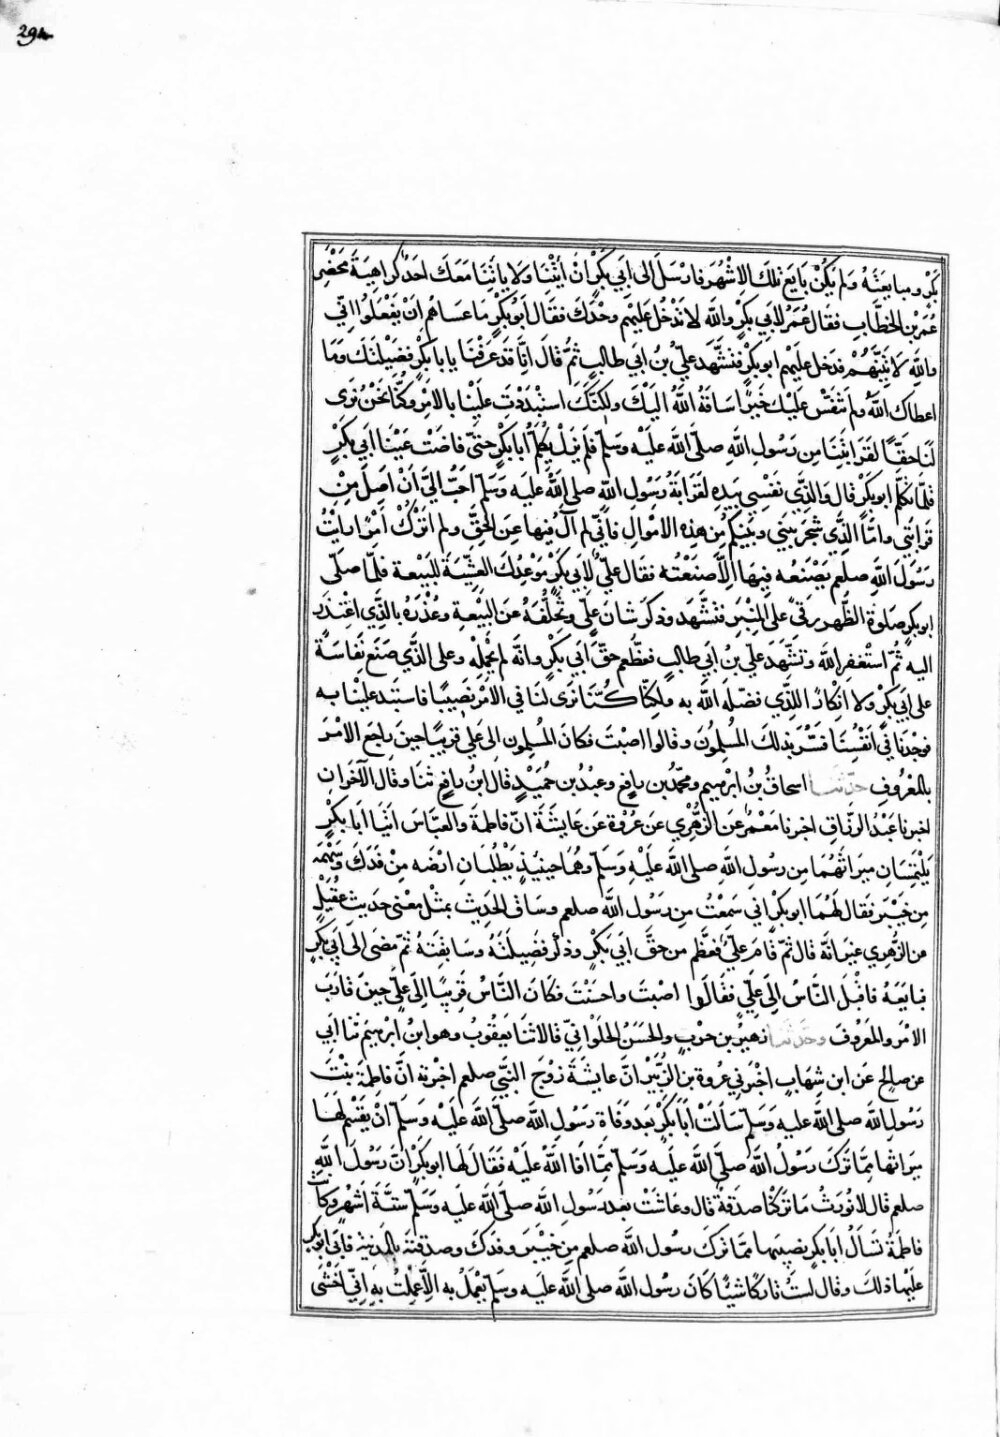 294
بَكْرٍ ومبايعَتَهُ وَلَم يَكُنْ بَايَعَ تلكَ الاشْهُرَ فارسَلَ الى اَبِي بَكْرٍ اَنْ ائْتِنَا وَلا يَاتِنَا مَعَكَ احَدٌ كراهِيَةَ مَحْضَرِ
عُمَرَ بْنِ الخطَّابِ فقال عُمَرُ لابي بكرٍ واللَّه لا تدْخُل عَليهِم وحْدَكَ فقَالَ اَبُو بكْرٍ مَا عسَاهُمْ اَنْ يَفْعَلُوا اِنّي
واللَّهِ لَاتِيَنَّهُمْ فدخل عليهم ابو بكرٍ فتشَهَّد عليُّ بْنُ ابي طالبٍ ثمَّ قالَ انّا قد عَرفنَا يا بابَكرٍ فَضِيلتَكَ وَمَا
اعطاك اللَّهُ ولَم نَنْفَسْ عَليْك خيرًا سَاقَهُ اللَّهُ اليكَ ولكنَّكَ اسْتَبْدَدْتَ عَلَيْنا بالامْرِ وكُنَّا نَحْنُ نَرَى
لَنَا حقًّا لقَرَابتِنَا مِن رَسُولِ اللَّهِ صلَّى اللَّه عليْه وسَلَّم فلَم يزلْ يُكلِّمُ اَبا بَكرٍ حتّى فاضَتْ عَيْنَا ابي بكرٍ
فلَمَّا تكلَّم ابو بكرٍ قال وَالَّذِي نفسِي بيَدِه لقَرَابَةُ رَسُولِ اللَّهِ صلى اللَّه عليه وسَلَّم احَبُّ اليَّ اَنْ اَصِلَ مِنْ
قَرَابَتي وامّا الَّذِي شجَر بيْنِي وبينكم مِن هذِه الامْوالِ فانّي لم آلُ فِيها عَنِ الحَقِّ ولم اتْرُكْ اَمْرًا رايْتُ
رسُولَ اللَّهِ صلعم يَصْنَعُه فِيهَا اِلَّا صنَعْتُه فقال عَليٌّ لِابي بكْرٍ مَوْعدُكَ العَشِيَّةَ لِلبَيْعةِ فلمّا صَلّى
ابو بكرٍ صَلوةَ الظُّهر رقَى على المنْبَرِ فتشَهَّدَ وذكرَ شان علِيٍّ وتخَلُّفَهُ عَنِ البَيْعةِ وعُذْرَهُ بالذِي اعْتذَرَ
اليه ثمَّ استَغْفرَ اللَّه وتَشَهَّدَ علِيُّ بنُ ابي طالبٍ فعَظَّم حقَّ ابي بكْرٍ وانّه لم يَحْمِلْه وعلى الذِي صَنَعَ نَفَاسَةً
على ابي بكْرٍ ولا اِنْكارًا للذي فضّلَه اللَّه به ولكِنّا كُنَّا نرَى لنَا في الامْرِ نصِيبًا فاستَبَدَّ علَيْنا به
فوَجَدْنا في اَنفُسِنا فَسُرَّ بِذلكَ المُسلمُونَ وقالوا اصَبْتَ فكَانَ المُسلِمون الى عليٍّ قريبًا حينَ راجَع الامْرَ
بالمَعْرُوفِ حَدّثنَا اسحاقُ بنُ ابرهيم ومحمّدُ بن رافعٍ وعبدُ بن حُمَيْدٍ قال ابنُ رافعٍ ثنا وقال الآخرَانِ
اخبرنا عَبْدُ الرَّزاقِ اخبرنا مَعْمَرٌ عن الزُّهْري عَن عُرْوة عن عَايشَةَ انّ فاطمةَ والعبَّاسَ اتَيَا اَبا بكْرٍ
يَلْتَمِسَانِ مِيرَاثَهُما مِن رسُولِ اللَّه صلى اللَّه عليْه وَسَلَّم وهُمَا حِينيذٍ يَطْلُبَانِ ارْضَه مِنْ فدَك وسَهْمَه
مِن خَيْبَر فقَالَ لهُمَا ابو بكرٍ اني سَمِعْتُ مِن رَسُولِ اللَّه صلعم وساق الحَدِيث بمثْلِ معْنى حديث عُقَيْلٍ
عن الزّهْرِي غيرَ انّه قال ثمّ قَامَ عليٌّ فعظَّم من حقِّ ابي بكرٍ وذكرَ فضِيلتَهُ وسَابِقتَهُ ثمّ مَضَى الى ابي بكرٍ
فبايعَهُ فاقْبلَ النَّاسُ الى علِيٍّ فقَالُوا اصَبتَ واحسَنْتَ فكَانَ النَّاسُ قرِيبًا اِلى علِيٍّ حِينَ قارَبَ
الامْرَ والمَعْرُوفَ وحَدّثنَا زهيرُ بن حَرْبٍ والحَسَنُ الحُلوَانيُّ قالا ثنَا يَعْقُوبُ وهو ابنُ ابرهيم ثنا ابي
عن صالحٍ عَنِ ابن شِهَابٍ اخْبَرني عُروة بن الزّبَيْرِ انّ عايشَةَ زوْجَ النَّبيِّ صلعم اخبرته انّ فاطِمَةَ بنتَ
رَسُولِ اللَّه صلى اللَّه عليه وَسَلَّم سَاَلَتْ اَبَا بكْرٍ بَعد وفَاة رَسُول اللَّه صلّى اللَّه عَليْه وسَلَّم اَنْ يَقْسِم لهَا
مِيرَاثها مِمَّا تَركَ رَسُولُ اللَّه صلَّى اللَّه عَليْه وَسَلَّم ممَّا افَا اللَّهُ عَليْه فقَالَ لهَا ابو بكرٍ اِنَّ رَسُولَ اللَّهِ
صلعم قال لا نُورَثُ مَا تَركْنَا صدَقةٌ قال وعَاشَتْ بَعد رَسُول اللَّه صلى اللَّه عَليه وسَلَّم سِتَّةَ اشْهُرٍ وكَانَتْ
فاطِمَةُ تَسْأَلُ ابا بكْرٍ نصِيبَهَا ممّا ترَك رسُولُ اللَّه صلعم مِن خيْبَرَ وفدَكَ وصدَقتَهُ بالمدِينَةِ فَابَى ابو بكر
عَلَيْها ذلكَ وقال لَسْتُ تاركًا شيْئًا كانَ رسُول اللَّه صلى اللَّه عليْه وسلّم يَعْمَلُ بهِ اِلَّا عَمِلتُ بهِ اِنّي اخْشَى